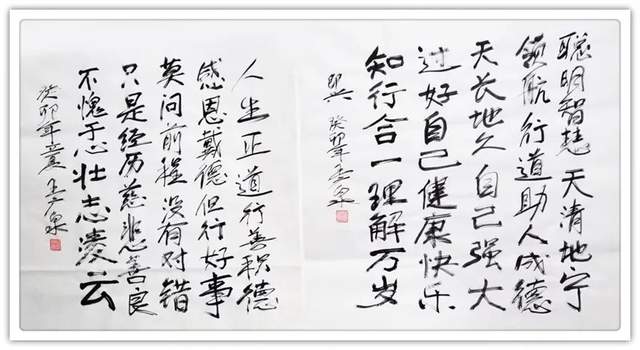 聪明智慧天清地宁
领航行道助人成德
天长地久自己强大
过好自己健康快乐
知行合一理解万岁
癸卯年
人生正道行善积德
感恩戴德但行好事
莫问前程没有对错
只是经历慈悲善良
不愧于心壮志凌云
癸卯年